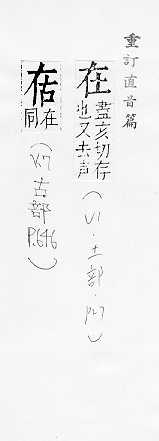 重訂直音篇
在 盡亥切存也又去声
（V1．土部．P27）
㕴 在同
（V.7 古部 P.646）